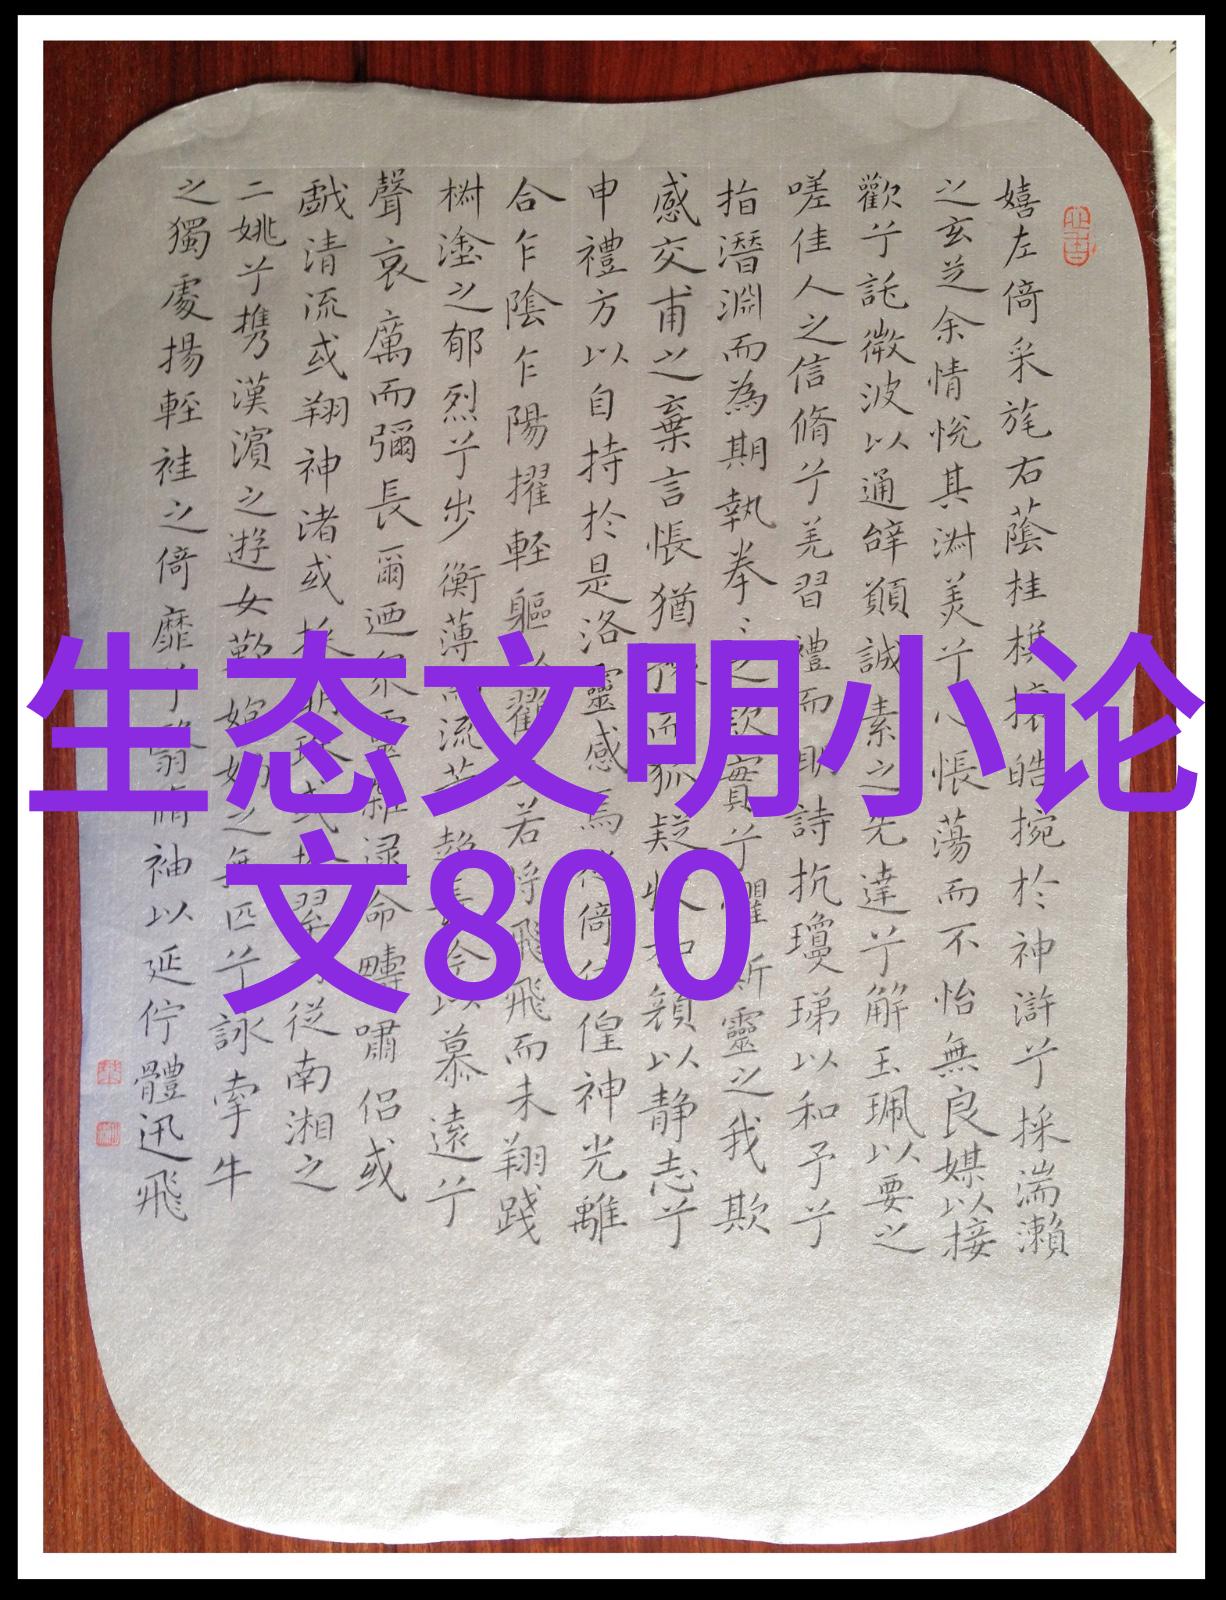 生态文明小论
文800
嬉左倚采旄右蔭桂攘皓捥於神滸兮採湍瀨
之玄芝余情悅其淑美兮心悵蕩而不怡無良媒以接
歡兮託微波以通辝願誠素之先達兮解玉珮以要之
嗟佳人之信脩兮羌習禮而明詩抗瓊珶以和予兮
指潛淵而為期執拳之款實兮懼斯靈之我欺
感交甫之棄言悵猶豫而狐疑收和顏以靜志兮
申禮方以自持於是洛靈感焉徙倚偟神光離
合乍陰乍陽擢輕軀以鶴立若將飛飛而未翔踐
樹塗之郁烈兮步衡薄而流芳超長吟以慕遠兮
聲哀厲而彌長爾迺眾靈雜遝命疇嘯侶或
戲清流或翔神渚或採明珠或拾翠羽從南湘之
二姚兮攜漢濱之遊女歎媧之無匹兮詠牽牛
之獨處揚輕袿之倚靡兮翳脩袖以延佇體迅飛